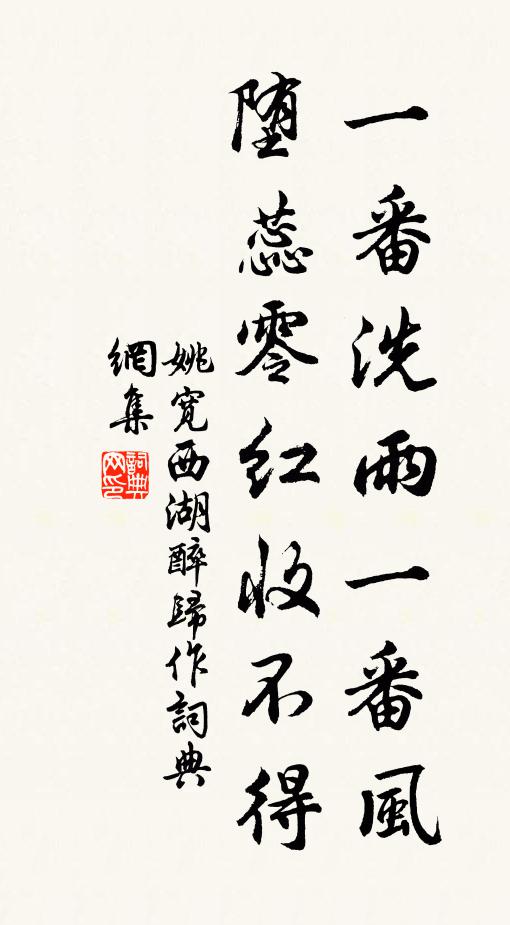 一番洗雨一番風
堕蕊零紅收不得
姚寬西湖醉歸作詞典
網集
詞典網印